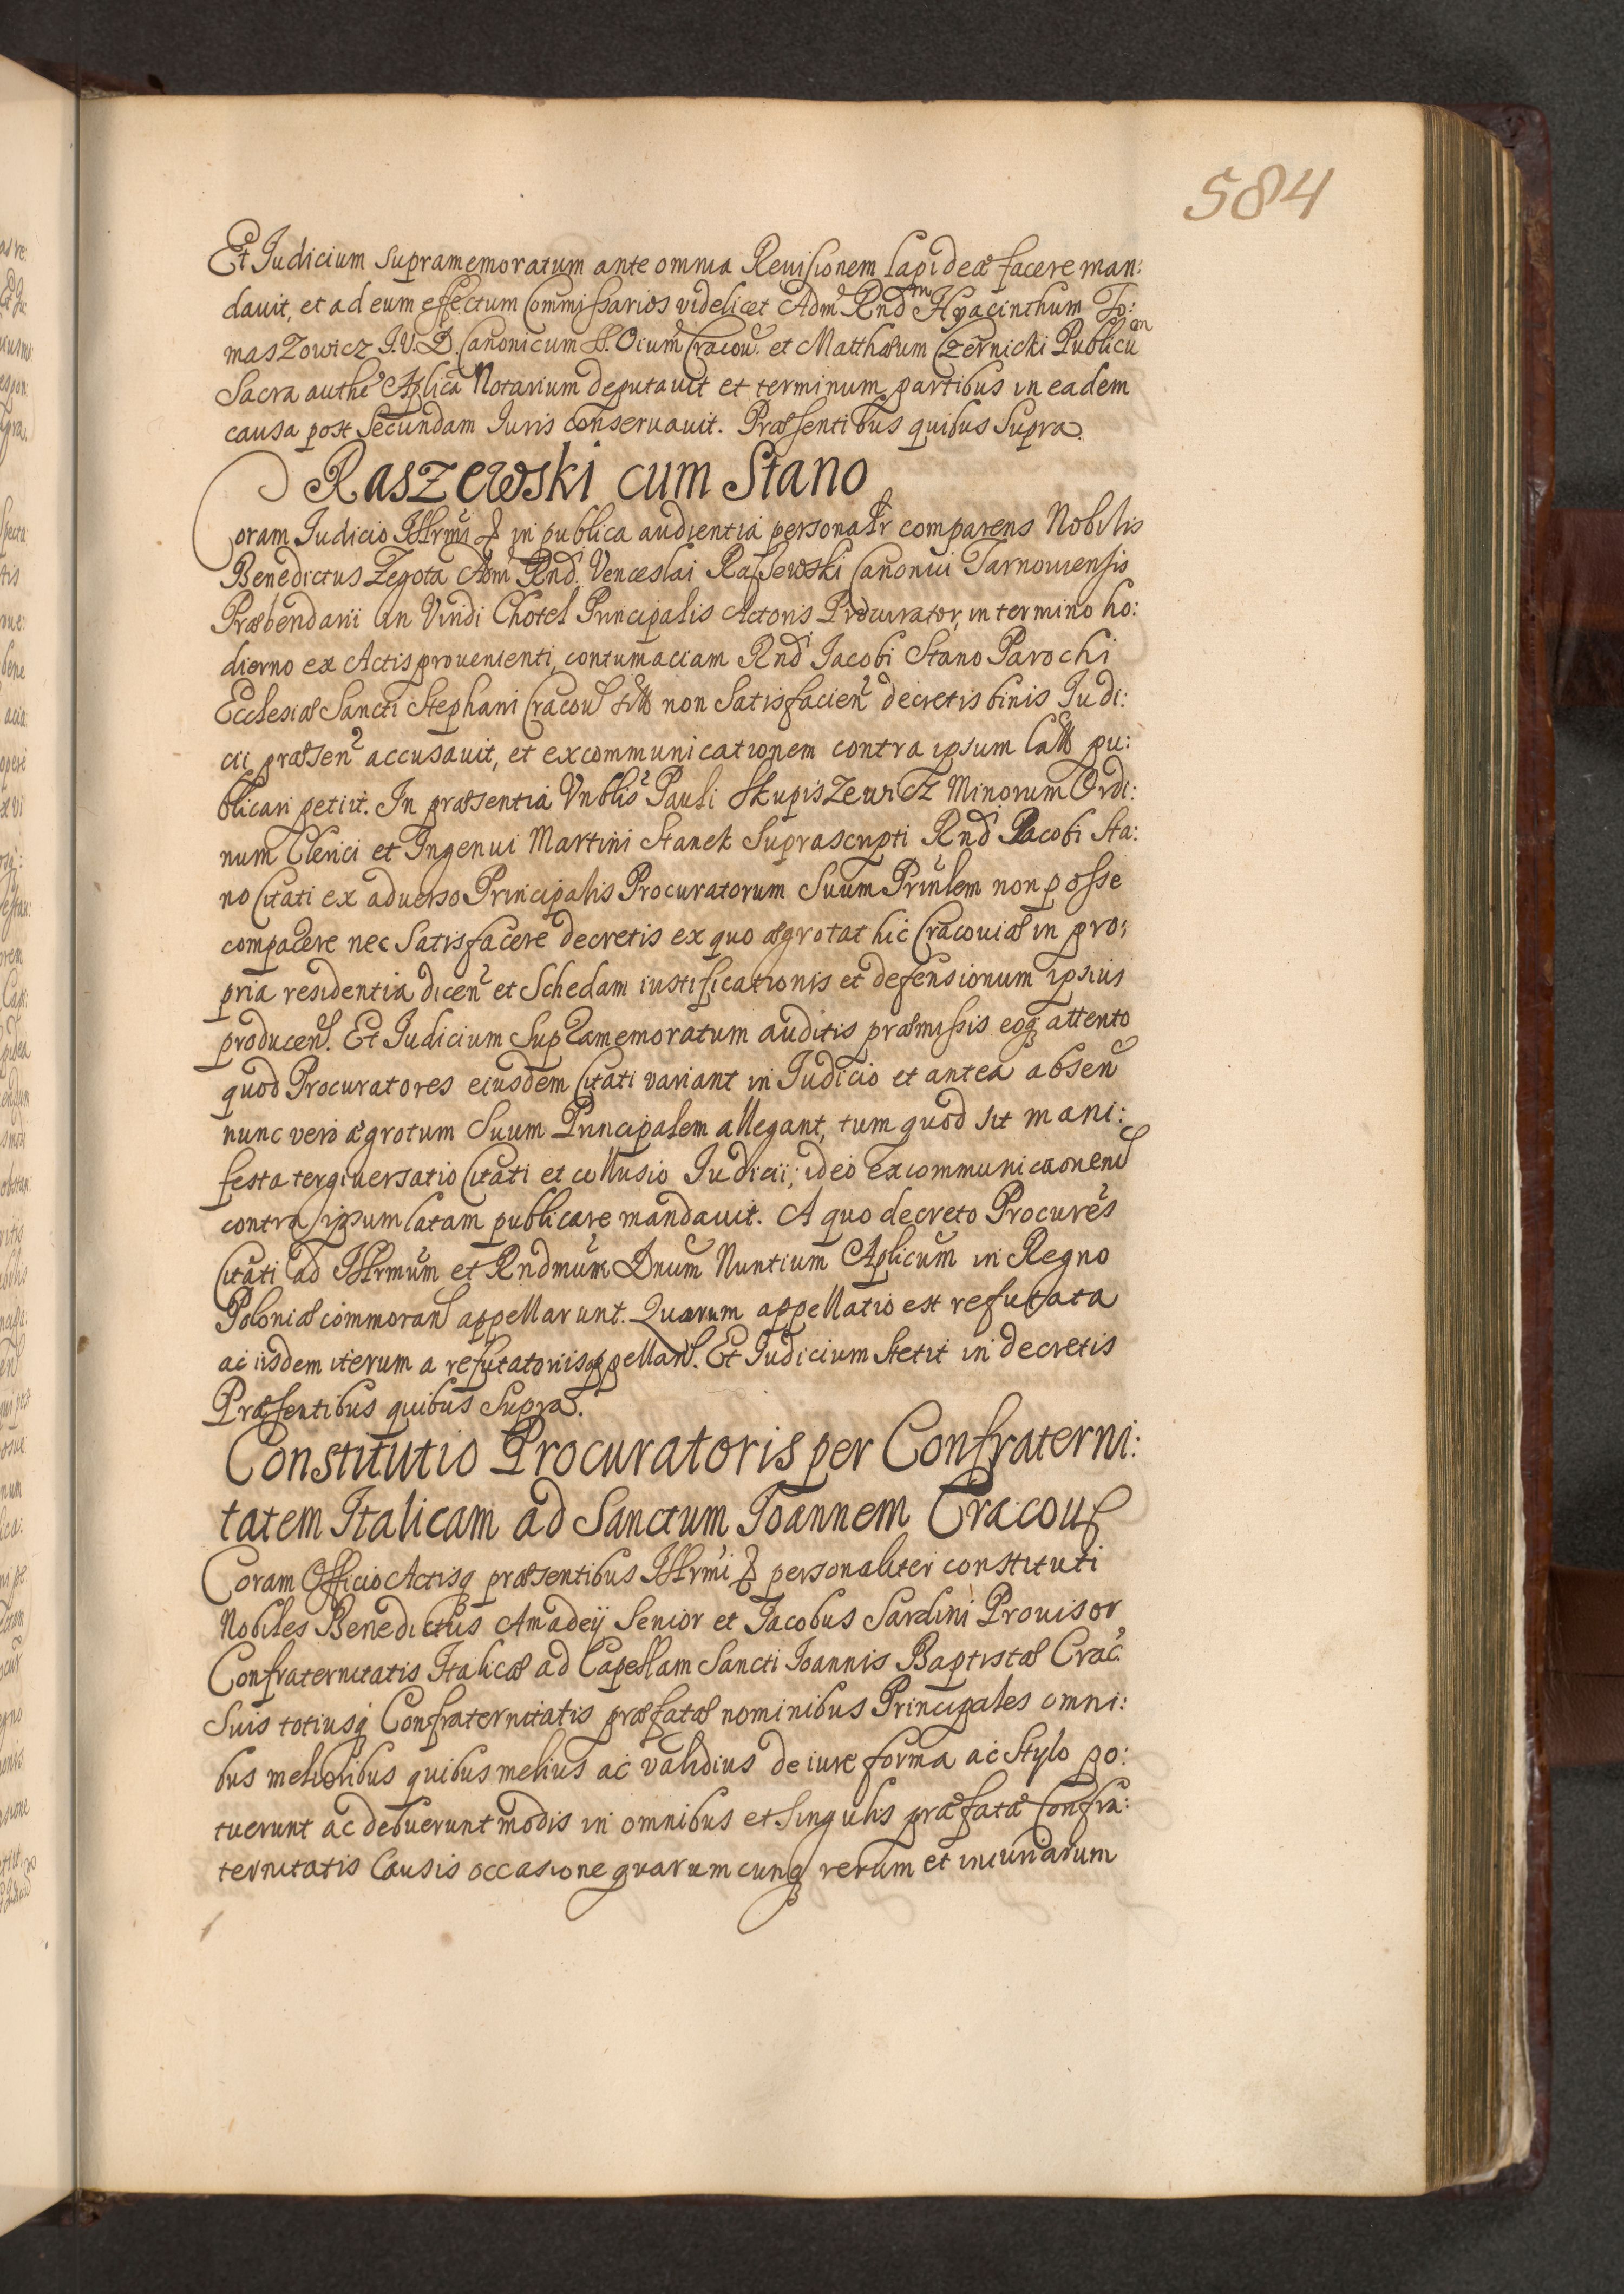 584
Et Judicium supramemoratum ante omnia Reuisionem lapideæ facere man:
dauit, et ad eum effectum Commissarios videlicet Adm Rndm Hyacinthum To:
maszowicz J.V.D. Canonicum SS. Oium Cracou. et Matthæum Czernicki Publicum
Sacra authe Aplica Notarium deputauit et terminum partibus in eadem
causa post secundam Iuris conseruauit. Præsentibus quibus supra.
Raszewski cum Stano
Coram Judicio Illrmi & in publica audientia personalr comparens Nobilis
Benedictus Zegota Adm Rnd. Venceslai Raszewski Canonici Tarnouiensis
Præbendarii in Vindi Chotel Principalis Actoris Procurator, in termino ho:
dierno ex Actis prouenienti, contumaciam Rndi Jacobi Stano Parochi
Ecclesiæ Sancti Stephani Cracou non satisfacien decretis binis Judi:
cii præsen accusauit, et excommunicationem contra ipsum pu:
blicari petiit. In præsentia Vnblis Pauli Skupiszewicz Minorum Ordi:
num Clerici et Ingenui Martini Stanek suprascripti Rnd Jacobi Sta:
no Citati ex aduerso Principalis Procuratorum suum Prinlem non posse
comparere nec satisfacere decretis ex quo ægrotat hic Cracouiæ in pro:
pria residentia dicen et Schedam iustificationis et defensionum ipsius
producen. Et Judicium supramemoratum auditis præmissis eoq attento
quod Procuratores eiusdem Citati variant in Judicio et antea absen
nunc vero ægrotum suum Principalem allegant, tum quod sit mani:
festa tergiuersatio Citati et collusio Judicii; ideo excommunicaonem
contra ipsum latam publicare mandauit. A quo decreto Procures
Citati ad Illrmum et Rndmum Dnum Nuntium Aplicum in Regno
Poloniæ commoran appellarunt. Quarum appellatio est refutata
ac iisdem iterum a refutatoriis appellan. Et Judicium stetit in decretis
Præsentibus quibus supra.
Constitutio Procuratoris per Confraterni:
tatem Italicam ad Sanctum Joannem Cracou
Coram Officio Actisq præsentibus Illrmi & personaliter constituti
Nobiles Benedictus Amadeij Senior et Jacobus Sardini Prouisor
Confraternitatis Italicæ ad Capellam Sancti Joannis Baptistæ Crac.
suis totiusq Confraternitatis præfatæ nominibus Principales omni:
bus melioribus quibus melius ac validius de iure forma ac stylo po:
tuerunt ac debuerunt modis in omnibus et singulis præfatæ Confra:
ternitatis Causis occasione quarumcunq rerum et iniuriarum